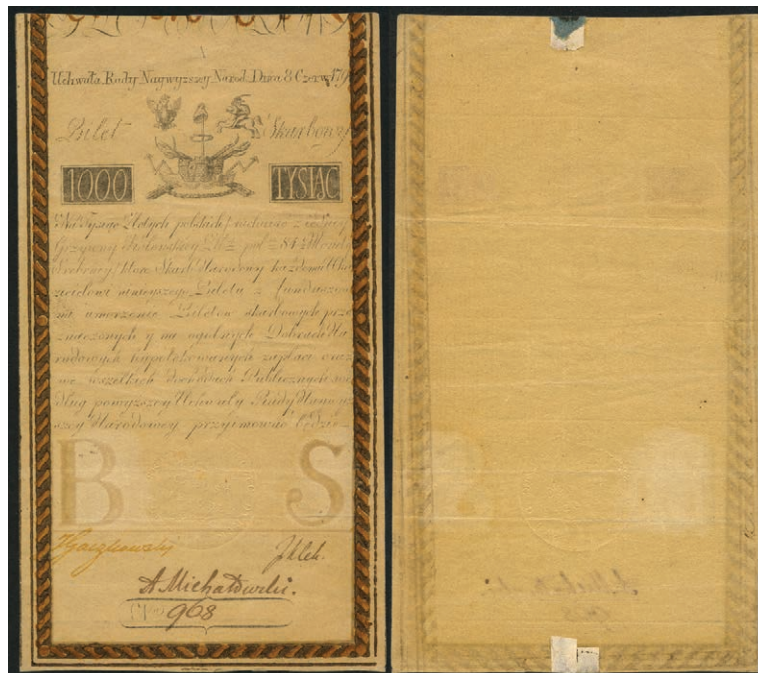 Uchwała Rady Naywyzszy Narod. Dnia 8 Czerw. 179
Bilet Skarbowy
1000 TYSIĄC
Na Tysiąc Złotych polskich rachuiąc z iedney
Grzywny Kolonskiey Zł. pol. 84
srebrney ktore Skarb Narodowy każdemu Oka
zicielowi ninieyszego Biletu z funduszow
na umorzenie Biletow skarbowych prze
znaczonych y na ogolnych Dobrach Na
rodowych zapłaci oraz
we wszelkich dochodach Publicznych
dług pomyzszey Uchwały Rady Naywyz
szey Narodowey przyimować będzie
B S
A Michałowski.
968